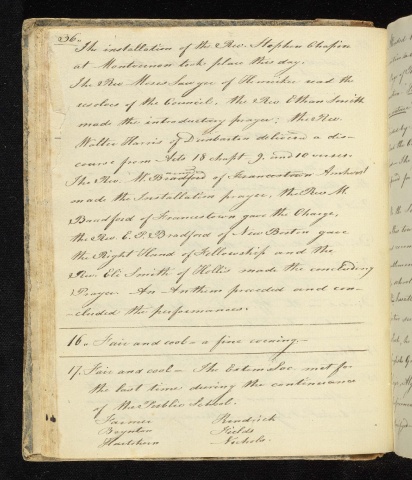 36.
The installation of the Rev. Stephen Chapin
at Montvernon took place this day.
The Rev. Moses Sawyer of Henniker read the
result of the Council, the Rev. Ethan Smith
made the introductory prayer; the Rev.
Walter Harris of Dunbarton delivered a dis-
course from Acts 18 chapt. 9. and 10 verses.
The Rev. W. Bradford of Francestown Amherst
made the Installation prayer, the Rev. M.
Bradford of Francestown gave the Charge,
the Rev. E. P. Bradford of New Boston gave
the Right Hand of Fellowship and the
Rev. Eli Smith of Hollis made the concluding
Prayer. An Anthem preceded and con-
cluded the performances.
16. Fair and cool - a fine evening.
17. Fair and cool - The Extem. Soc. met for
the last time during the continuance
of the Public School.
Farmer Kendrick
Boynton Fields
Hutchinson Nichols.